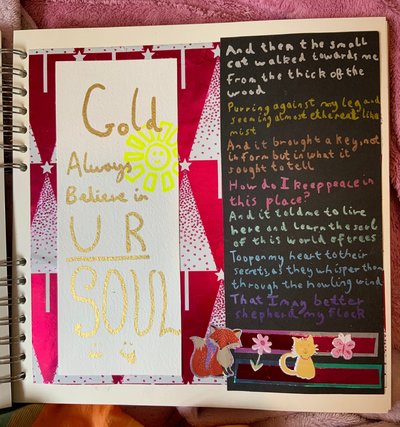 Gold
Always
Believe in
U R
SOUL
And then the small
cat walked towards me
from the thick of the
wood
Purring against my leg and
seeming almost ethereal like
mist
And it brought a key, not
in form but in what it
sought to tell
How do I keep peace in
this place?
And it told me to live
here and learn the soul
of this world of trees
To open my heart to their
secrets, as they whisper them
through the howling wind
That I may better
shepherd my flock